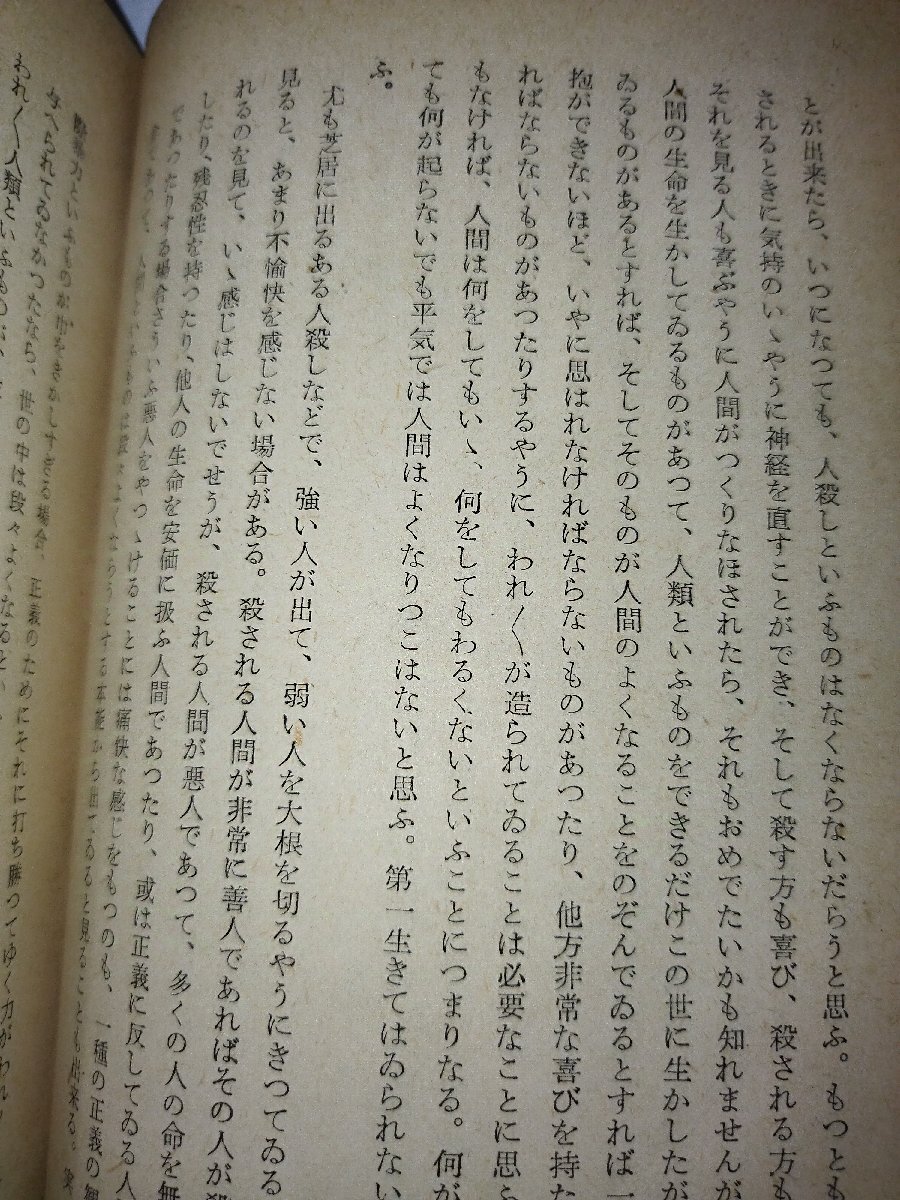 とが出来たら、いつになつても、人殺しといふものはなくならないだらうと思ふ。もつとも
されるときに気持のいゝやうに神経を直すことができ、そして殺す方も喜び、殺される方も
それを見る人も喜ぶやうに人間がつくりなほされたら、それもおめでたいかも知れませんが
人間の生命を生かしてゐるものがあつて、人類といふものをできるだけこの世に生かしたが
ゐるものがあるとすれば、そしてそのものが人間のよくなることをのぞんでゐるとすれば一
抱ができないほど、いやに思はれなければならないものがあつたり、他方非常な喜びを持た
ればならないものがあつたりするやうに、われ〳〵が造られてゐることは必要なことに思ふ
もなければ、人間は何をしてもいゝ、何をしてもわるくないといふことにつまりなる。何が
ても何が起らないでも平気では人間はよくなりつこはないと思ふ。第一生きてはゐられない
ふ。
尤も芝居に出るある人殺しなどで、強い人が出て、弱い人を大根を切るやうにきつてゐる
見ると、あまり不愉快を感じない場合がある。殺される人間が非常に善人であればその人が殺
れるのを見て、いゝ感じはしないでせうが、殺される人間が悪人であつて、多くの人の命を無
したり、残忍性を持つたり、他人の生命を安価に扱ふ人間であつたり、或は正義に反してゐる人
であつたりする場合さういふ悪人をやつゝけることには痛快な感じをもつのも、一種の正義の観
よくならうとする本能から出てゐると見ることも出来る。
力といふものが幅をきかしすぎる場合、正義のためにそれに打ち勝つてゆく力がわれ
へられてゐなかつたなら、世の中は段々よくなるとい
われ〳〵人類といふものが、